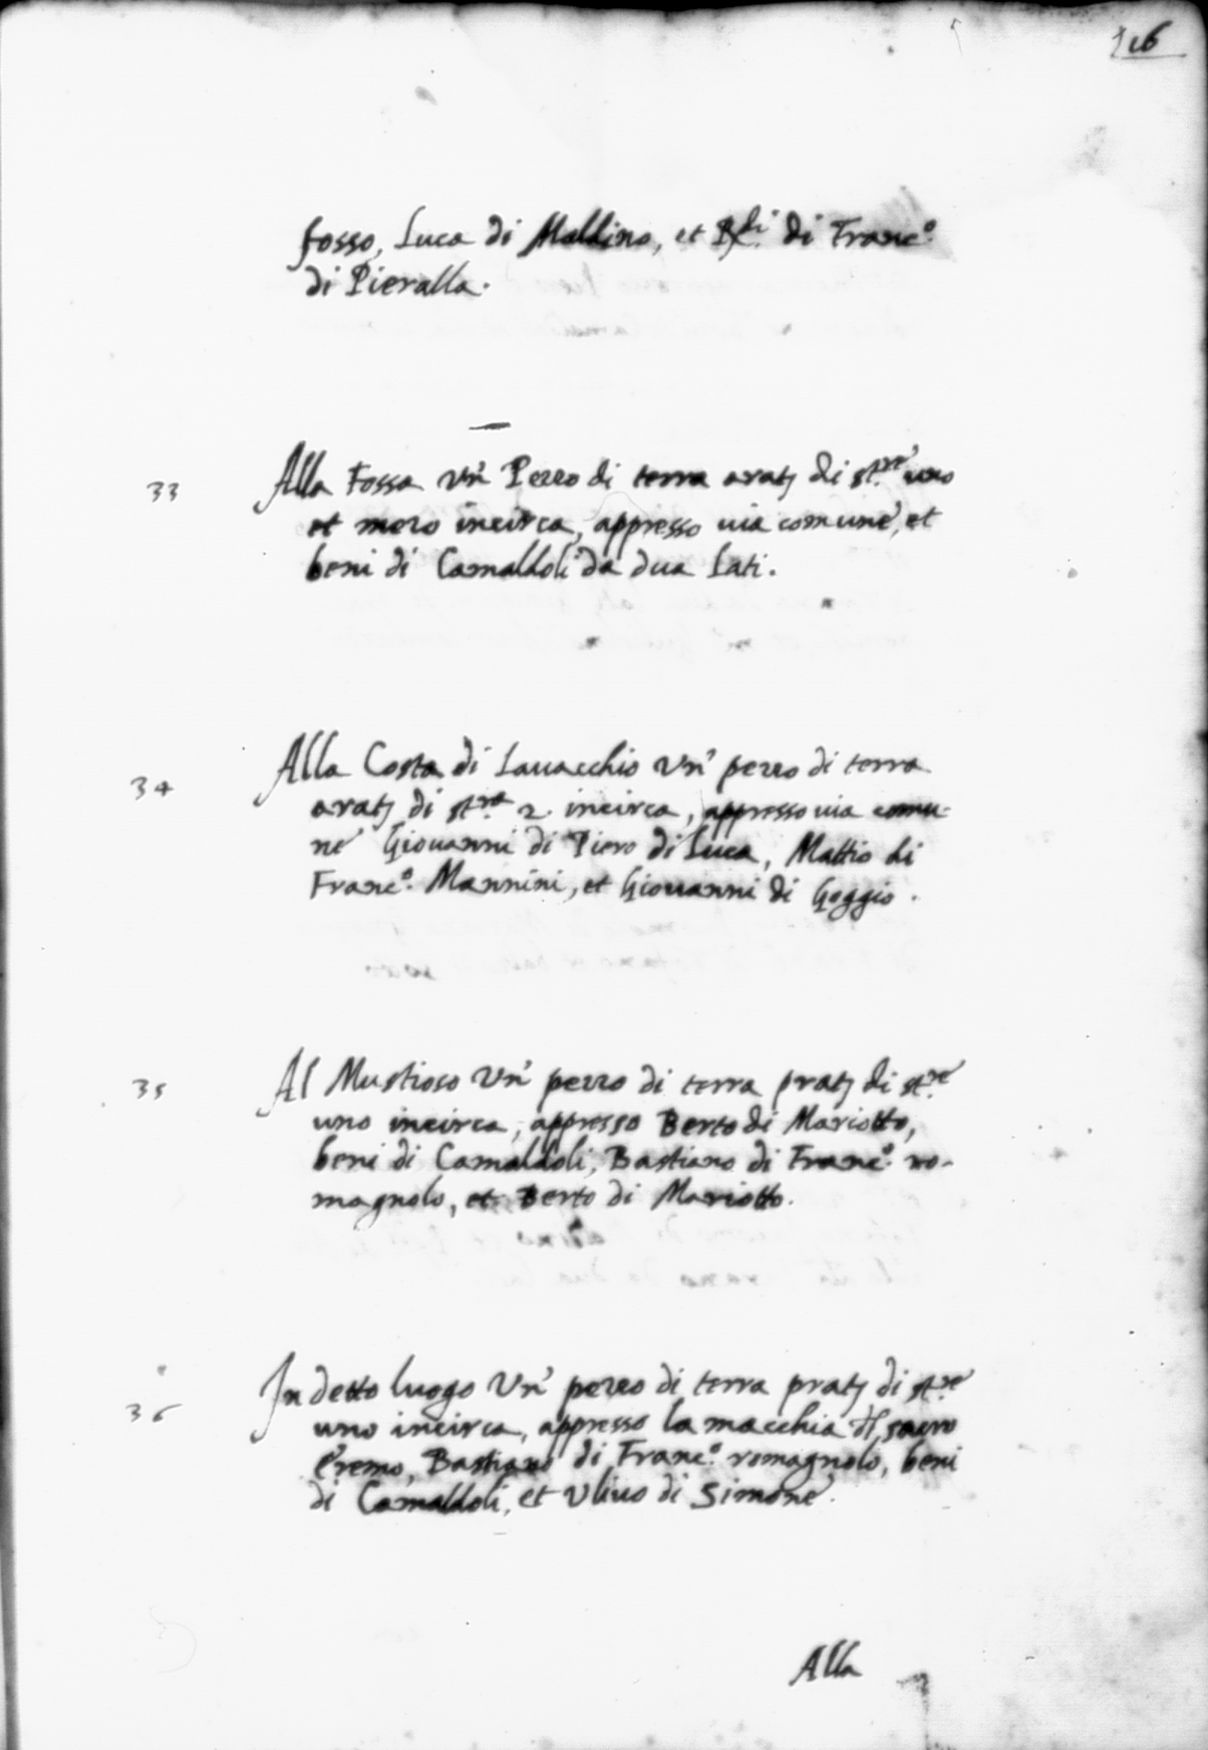 116
fosso, Luca di Maldino, et Rdi. di Franc.o
di Pieralla.
33 Alla Fossa Vn' Pezzo di terra arat; di st.re uno
et mezo incirca, appresso uia comune, et
beni di Camaldoli da dua Lati.
34 Alla Costa di Lauacchio Vn' pezzo di terra
arat; di st.ra 2. incirca, appresso uia comu-
ne Giouanni di Piero di Luca, Mattio di
Franc.o Mannini, et Giouanni di Goggio.
35 Al Mustioso Vn' pezzo di terra prat; di st.re
uno incirca, appresso Berto di Mariotto,
beni di Camaldoli, Bastiano di Franc.o ro-
magnolo, et Berto di Mariotto.
36 In detto luogo Vn' pezzo di terra prat; di st.re
uno incirca, appresso la macchia dl sacro
Eremo, Bastiano di Franc.o romagnolo, beni
di Camaldoli, et Vliuo di Simone.
Alla